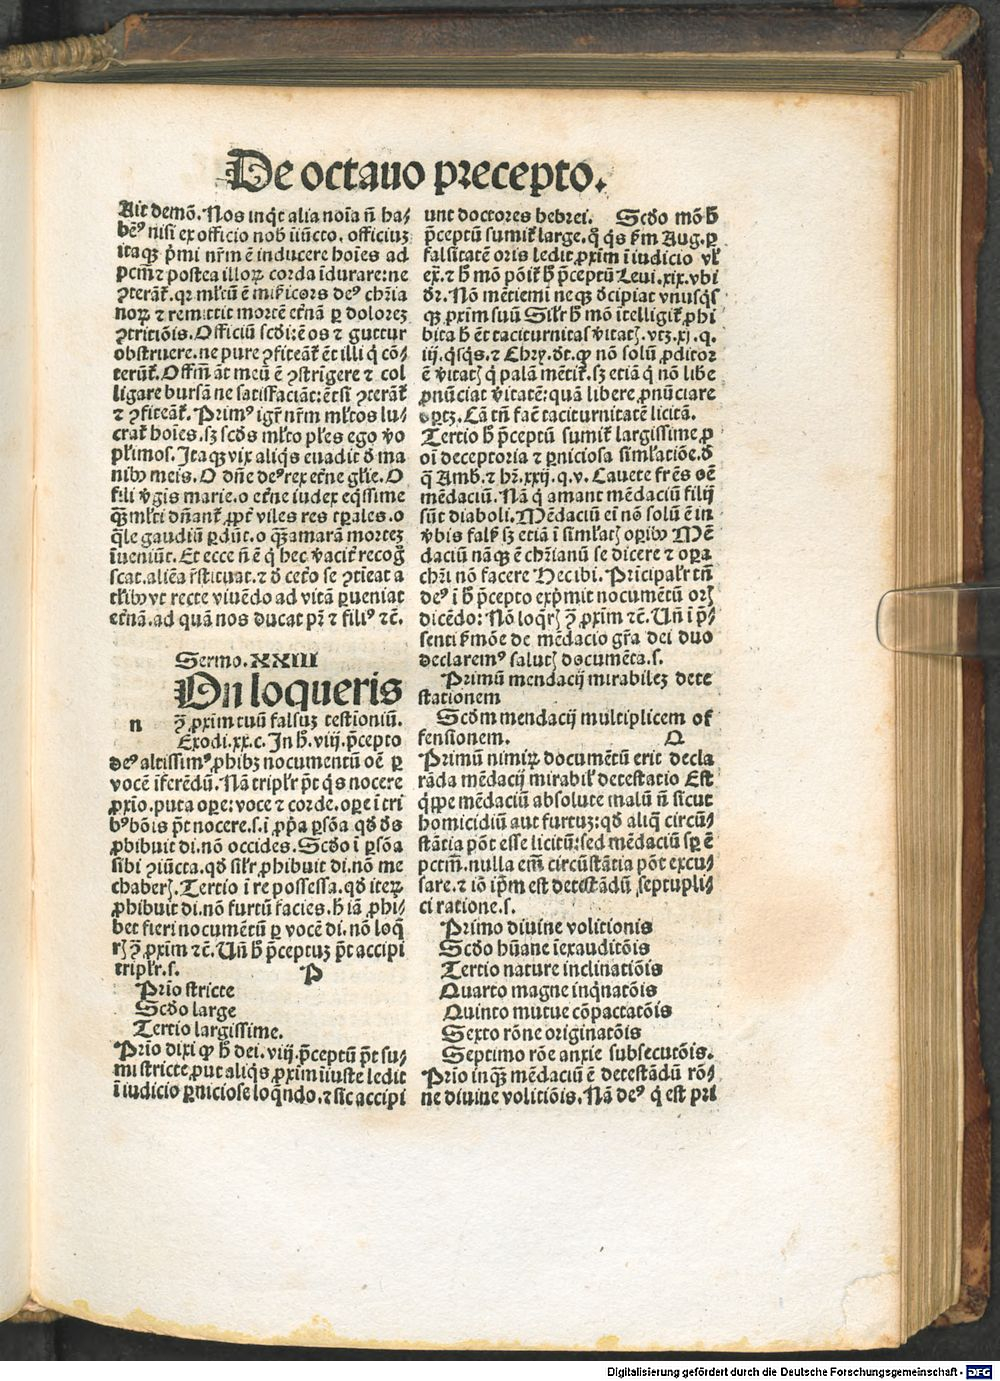 De octauo precepto.
Ait demō. Nos inq̄t alia noīa n̄ ha⸗
bēꝰ nisi ex officio nob̄ iīucto. officiuꝫ
itaqꝫ p̄mi nr̄m ē inducere hoīes ad
pctm̄ ⁊ postea illoꝝ corda īdurare: ne
ꝯterāt̄. qꝛ ml̄tū ē mīcors deꝰ chr̄ia
noꝝ ⁊ remittit mortē et̄nā ꝑ dolorez
ꝯtritiōis. Officiū scd̄i: ē os ⁊ guttur
obstruere. ne pure ꝯfiteāt̄ ēt illi q̇ cō⸗
terūt̄. Offm̄ āt meū ē ꝯstrīgere ⁊ col
ligare bursā ne satisfaciāt: ēt si ꝯterāt̄
⁊ ꝯfiteāt̄. Primꝰ igr̄ nr̄m ml̄tos lu⸗
crat̄ hoīes. sꝫ scd̄s ml̄to pl̄es ego v̄o
pl̄imos. Itaqꝫ vix aliq̇s euadit d̄ ma
nibꝰ meis. O dn̄e deꝰ rex et̄ne gl̄ie. O
fili v̄gis marie. o et̄ne iudex eq̇ssime
qꝫ ml̄ti dn̄ant̄ ꝓpt̄ viles res tꝑales. o
q̄le gaudiū ꝑdūt. o qꝫ amarā mortez
īueniūt. Et ecce n̄ ē q̇ hec v̄acit̄ recoḡ
scat. aliēa r̄stituat. ⁊ d̄ cet̄o se ꝯtīeat a
tl̄ibꝰ vt recte viuēdo ad vitā ꝑueniat
et̄nā. ad quā nos ducat pr̄ ⁊ filiꝰ ⁊c̄.
Sermo. XXIII
On loqueris
n
ꝯ̄ ꝓxīm tuū falsuꝫ testioniū.
Exodi. xx. c. In h̄. viij. p̄cepto
deꝰ altissimꝰ ꝓhibꝫ nocumentū oē ꝑ
vocē īferēdū. Nā tripl̄r pt̄ q̇s nocere
ꝓxīo. puta oꝑe: voce ⁊ corde. oꝑe ī tri
bꝰ bōis pt̄ nocere. s. ī ꝓpa ꝑsōa qd̄ ds̄
ꝓhibuit di. nō occides. Scd̄o ī ꝑsōa
sibi ꝯiūcta. qd̄ sil̄r ꝓhibuit di. nō me
chaberꝭ. Tertio ī re possessa. qd̄ iteꝝ
ꝓhibuit di. nō furtū facies. h̄ iā ꝓhi⸗
bet fieri nocumētū ꝑ vocē di. nō loq̄
rꝭ ꝯ̄ ꝓxīm ⁊c̄. Un̄ h̄ p̄ceptuꝫ pt̄ accipi
tripl̄r. s. P
Prīo stricte
Scd̄o large
Tertio largissime.
Prīo dixi ꝙ h̄ dei. viij. p̄ceptū pt̄ su⸗
mi stricte, put aliq̇s ꝓxīm iīuste ledit
ī iudicio ꝑniciose loq̄ndo. ⁊ sic accipi
unt doctores hebrei. Scd̄o mō h̄
p̄ceptū sumit̄ large. ꝙ q̇s km̄ Aug. ꝑ
falsitatē oris ledit ꝓxim ī iudicio vl̄
ex̄. ⁊ h̄ mō pōit̄ h̄ p̄ceptū Leui. xix. vbi
dr̄. Nō mētiemi neqꝫ d̄cipiat vnusq̇s
qꝫ ꝓxim suū. Sil̄r h̄ mō ītelligit̄ ꝓhi
bita h̄ ēt taciturnitas v̄itatꝭ. vtꝫ. xj. q.
iij. q̇sq̇s. ⁊ Chry. dt̄. ꝙ nō solū ꝓditor
ē v̄itatꝭ q̇ palā mētit̄. sꝫ etiā q̇ nō libe
ꝓnūciat v̄itatē: quā libere ꝓnūciare
oꝑtꝫ. Cā tn̄ fac̄ taciturnitatē licitā.
Tertio h̄ p̄ceptū sumit̄ largissime ꝓ
oī deceptoria ⁊ ꝑniciosa siml̄atiōe. d̄
q̄ Amb. ⁊ hr̄. xxij. q. v. Cauete fr̄es oē
mēdaciū. Nā q̇ amant mēdaciū filij
sūt diaboli. Mēdaciū ei nō solū ē in
v̄bis fal̄s sꝫ etiā ī siml̄atꝭ oꝑibꝰ. Mē
daciū nāqꝫ ē chr̄ianū se dicere ⁊ oꝑa
chr̄i nō facere Hec ibi. Prīcipal̄r tn̄
deꝰ ī h̄ p̄cepto exp̄mit nocumētū orꝭ
dicēdo: Nō loq̄rꝭ ꝯ̄ ꝓxim ⁊c̄. Un̄ ī p̄⸗
senti s̄mōe de mēdacio gr̄a dei duo
declaremꝰ salutꝭ documēta. s.
Primū mendacij mirabilez dete
stationem
Scd̄m mendacij multiplicem of
fensionem. Q
Primū nimiꝝ documētū erit decla
rāda mēdacij mirabil̄ detestatio Est
q̇ppe mēdaciū absolute malū n̄ sicut
homicidiū aut furtuꝫ: qd̄ aliq̄ circū⸗
stātia pōt esse licitū: sed mēdaciū sꝑ ē
pctm̄. nulla em̄ circūstātia pōt excu⸗
sare. ⁊ iō ip̄m est detestādū septupli⸗
ci ratione. s.
Primo diuine volitionis
Scd̄o hūane īexauditōis
Tertio nature inclinatiōis
Quarto magne inq̇natōis
Quinto mutue cōpactatōis
Sexto rōne originatōis
Septimo rōe anxie subsecutōis.
Prīo inqꝫ mēdaciū ē detestādū rō⸗
ne diuine volitiōis. Nā deꝰ q̇ est pri
Digitalisierung gefördert durch die Deutsche Forschungsgemeinschaft - DFG